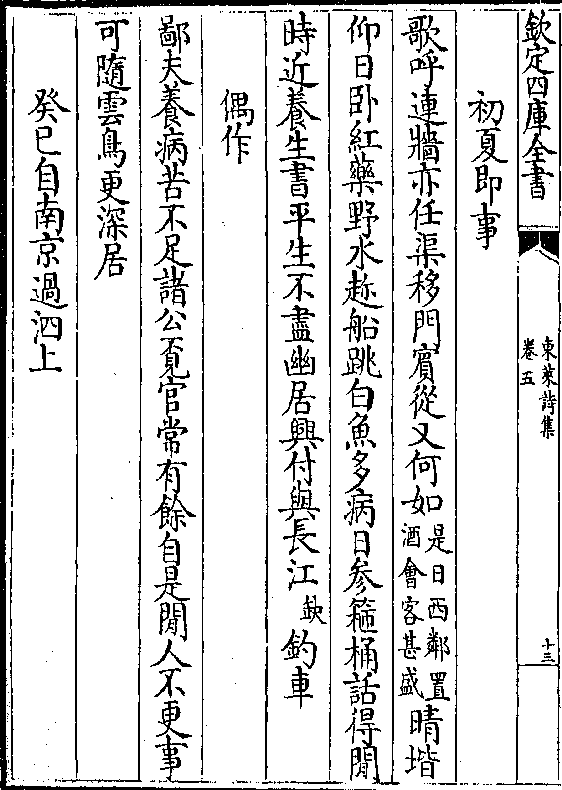 欽定四庫全書
東萊詩集
卷五
十三
初夏即事
歌呼連牆亦任渠移門賓從又何如是日西鄰置酒會客甚盛晴堦
仰日卧紅藥野水趂船跳白魚多病日參箍桶話得閒
時近養生書平生不盡幽居興付與長江缺釣車
偶作
鄙夫養病苦不足諸公覔官常有餘自是閒人不更事
可隨雲鳥更深居
癸巳自南京過泗上